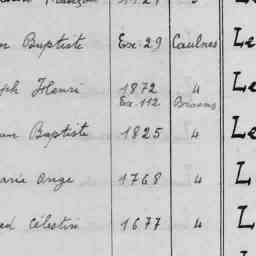 n Baptiste Ex: 29 Caulnes Le
ph Henri 1872 " Le
Ex. 112 Broons
n Baptiste 1825 " Le
arie Ange 1768 " L
ed Célestin 1677 " L